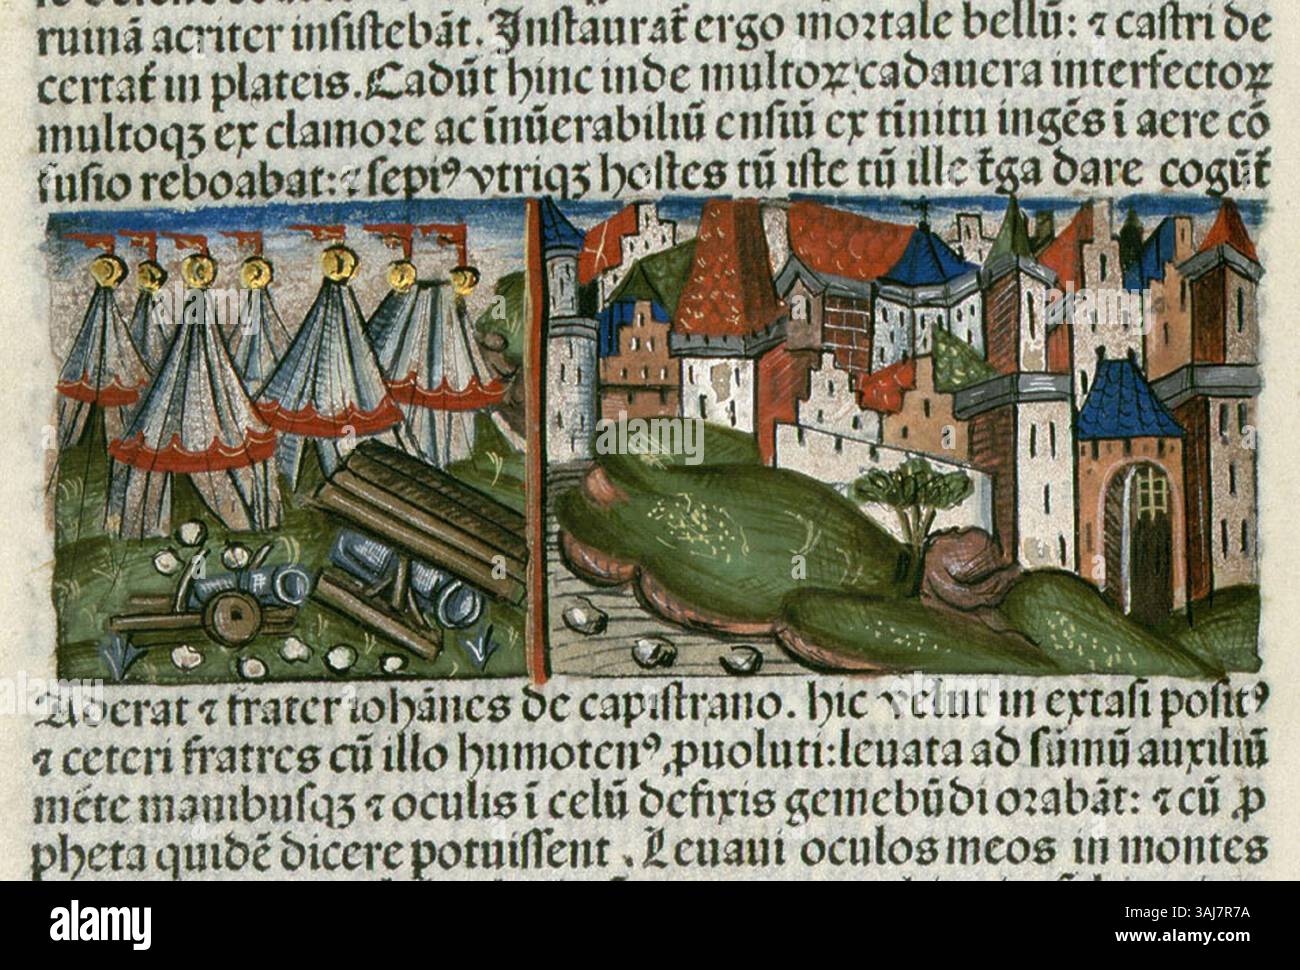 ruinã acriter insistebãt. Instaurat̃ ergo mortale bellũ: ⁊ castri de
certat̃ in plateis. Cadũt hinc inde multoꝝ cadauera interfectoꝝ
multoqꝫ ex clamore ac ĩnũerabiliũ ensiũ ex tĩnitu ingẽs ĩ aere cõ
fusio reboabat: ⁊ sepiꝰ vtriqꝫ hostes tũ iste tũ ille t̃ga dare cogũt̃
Aderat ⁊ frater iohãnes de capistrano. hic velut in extasi positꝰ
⁊ ceteri fratres cũ illo humotenꝰ ꝓuoluti: leuata ad sũmũ auxiliũ
mẽte manibusqꝫ ⁊ oculis ĩ celũ defixis gemebũdi orabãt: ⁊ cũ ꝓ
pheta quidẽ dicere potuissent. Leuaui oculos meos in montes
alamy
Image ID: 3AJ7R7A
www.alamy.com